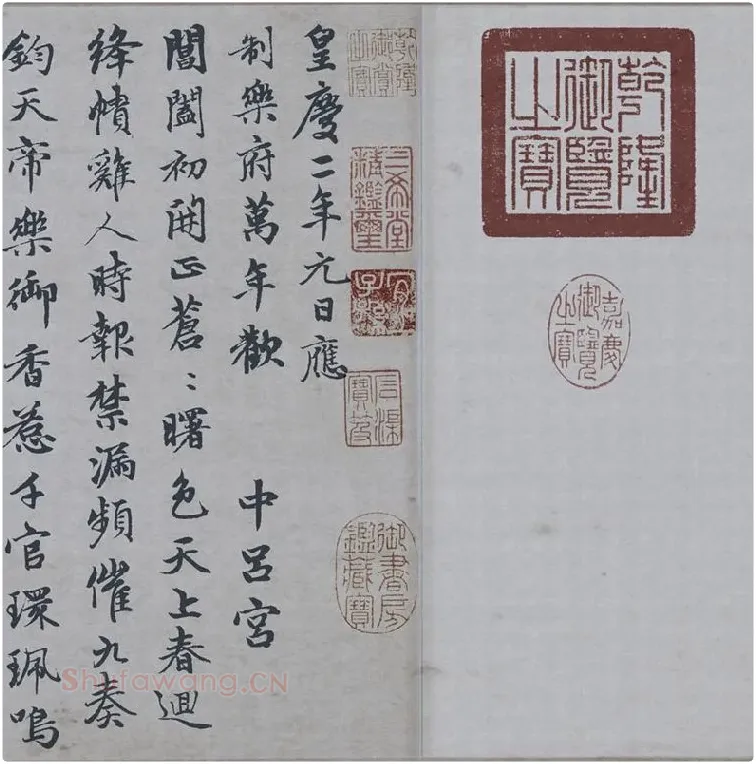 乾隆御覽之寶
嘉慶御覽之寶
乾隆御賞之寶
三希堂精鑑璽
宜子孫
石渠寶笈
御書房鑑藏寶
皇慶二年元日應
制樂府萬年歡 中呂宮
閶闔初開正蒼〻曙色天上春迴
絳幘雞人時報禁漏頻催九奏
鈞天帝樂御香惹千官環珮鳴
Shufawang.CN